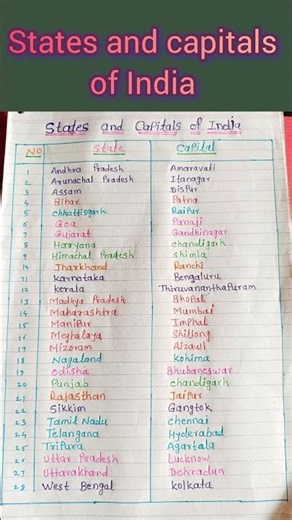 States and capitals
of India
States and Capitals of India
NO State Capital
1 Andhra Pradesh Amaravati
2 Arunachal Pradesh Itanagar
3 Assam Dispur
4 Bihar Patna
5 Chhattisgarh Raipur
6 Goa Panaji
7 Gujarat Gandhinagar
8 Haryana Chandigarh
9 Himachal Pradesh Shimla
10 Jharkhand Ranchi
11 Karnataka Bengaluru
12 Kerala Thiruvananthapuram
13 Madhya Pradesh Bhopal
14 Maharashtra Mumbai
15 Manipur Imphal
16 Meghalaya Shillong
17 Mizoram Aizawl
18 Nagaland Kohima
19 Odisha Bhubaneswar
20 Punjab Chandigarh
21 Rajasthan Jaipur
22 Sikkim Gangtok
23 Tamil Nadu Chennai
24 Telangana Hyderabad
25 Tripura Agartala
26 Uttar Pradesh Lucknow
27 Uttarakhand Dehradun
28 West Bengal Kolkata